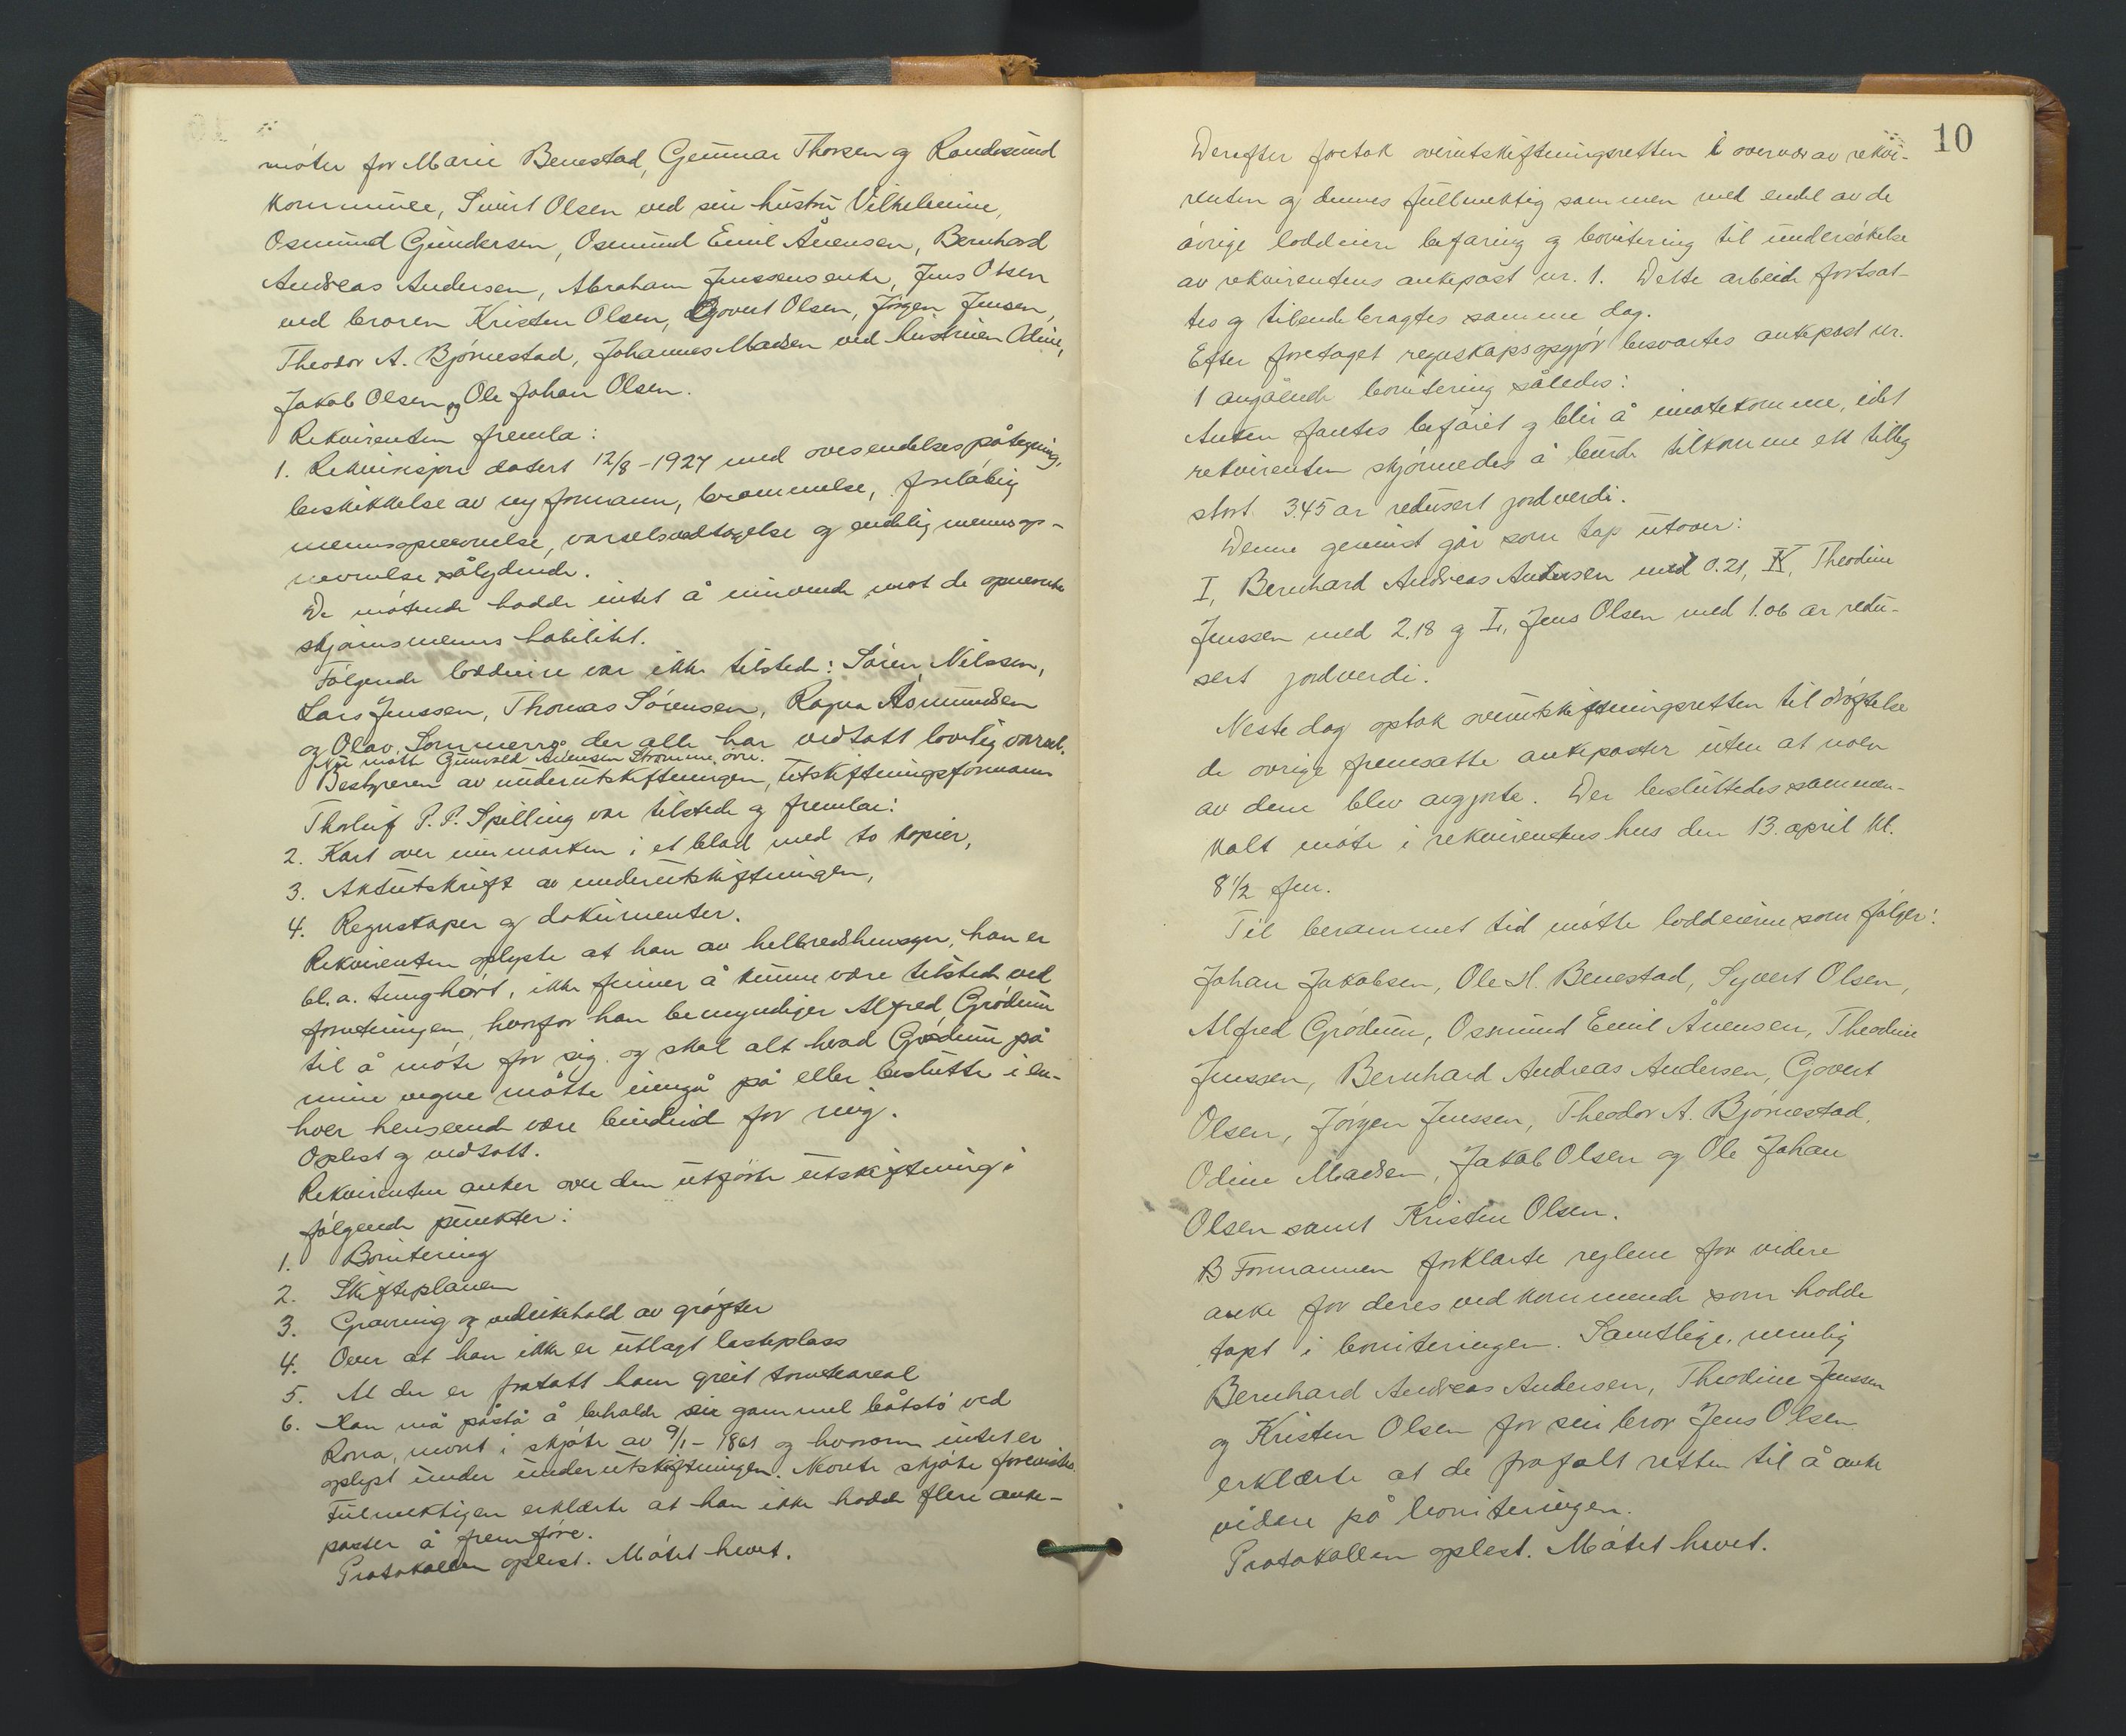 møter for Marie Benestad, Gunnar Thorsen og Randesund
kommune, Sivert Olsen ved sin hustru Vilhelmine,
Osmund Gundersen, Osmund Emil Åuensen, Bernhard
Andreas Andersen, Abraham Jenssens enke, Jens Olsen
ved broren Kristen Olsen, Govert Olsen, Jørgen Jensen,
Theodor A. Bjørnestad, Johannes Madsen ved hustruen Odine,
Jakob Olsen og Ole Johan Olsen.
Rekvirenten fremla:
1. Rekvisisjon datert 12/8-1927 med oversendelsespåtegning,
beskikkelse av ny formann, berammelse, foreløbig
mennsopnevnelse, varselsvedtagelse og endelig mennsop-
nevnelse sålydende.
De møtende hadde intet å innvende mot de opnevnte
skjønsmenns habilitet.
Følgende loddeiere var ikke tilstede: Søren Nilssen,
Lars Jenssen, Thomas Sørensen, Ragna Åsmundsen
og Olav Sommerro der alle har vedtatt lovlig varsel.
Nu møtte Gunvald Auensen Strømme, øvre.
Bestyreren av underutskiftningen, utskiftningsformann
Thorleif P. P. Spilling var tilstede og fremla:
2. Kart over innmarken i et blad med to kopier,
3. Aktutskrift av underutskiftningen,
4. Regnskaper og dokumenter.
Rekvirenten oplyste at han av helbredshensyn, han er
bl.a. tunghørt, ikke finner å kunne være tilstede ved
forretningen, hvorfor han bemyndiger Alfred Grødum
til å møte for sig. og skal alt hvad Grødum på
mine vegne måtte inngå på eller beslutte i en-
hver henseende være bindende for mig.
Oplest og vedtatt.
Rekvirenten anker over den utførte utskiftning i
følgende punkter:
1. Bonitering
2. Skifteplanen
3. Gravning og vedlikehold av grøfter
4. Over at han ikke er utlagt lasteplass
5. At der er fratatt ham greit tomteareal
6. Han må påstå å beholde sin gammel båtstø ved
Rona, nevnt i skjøte av 9/1-1861 og hvorom intet er
oplyst under underutskiftningen. Nevnte skjøte forevistes.
Fullmektigen erklærte at han ikke hadde flere anke-
poster å fremføre.
Protokollen oplest. Møtet hevet.
10
Derefter foretok overutskiftningsretten i overvær av rekvi-
renten og dennes fullmektig sammen med endel av de
øvrige loddeiere befaring og bonitering til undersøkelse
av rekvirentens ankepost nr. 1. Dette arbeide fortsat-
tes og tilendebragtes samme dag.
Efter foretaget regnskapsopgjør besvartes ankepost nr.
1 angående bonitering således:
Anken fantes beføiet og blir å imøtekomme, idet
rekvirenten skjønnedes å burde tilkomme ett tilleg
stort 3.45 ar redusert jordverdi.
Denne gevinst går som tap utover:
I, Bernhard Andreas Andersen med 0.21, K, Theodine
Jenssen med 2.18 og L, Jens Olsen med 1.06 ar redu-
sert jordverdi.
Neste dag optok overutskiftningsretten til drøftelse
de øvrige fremsatte ankeposter uten at noen
av dem blev avgjorte. Der besluttedes sammen-
kalt møte i rekvirentens hus den 13. april kl.
8 1/2 fm.
Til berammet tid møtte loddeierne som følger:
Johan Jakobsen, Ole H. Benestad, Syvert Olsen,
Alfred Grødum, Osmund Emil Åuensen, Theodine
Jenssen, Bernhard Andreas Andersen, Govert
Olsen, Jørgen Jenssen, Theodor A. Bjørnestad,
Odine Madsen, Jakob Olsen og Ole Johan
Olsen samt Kristen Olsen.
Formannen forklarte reglene for videre
anke for deres vedkommende som hadde
tapt i boniteringen. Samtlige, nemlig
Bernhard Andreas Andersen, Theodine Jenssen
og Kristen Olsen for sin bror Jens Olsen
erklærte at de frafalt retten til å anke
videre på boniteringen.
Protokollen oplest. Møtet hevet.